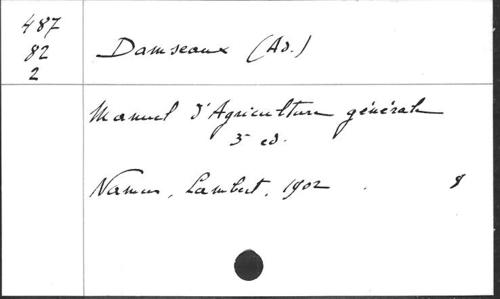 487
82
2
Damseaux (Ad.)
Manuel d'Agriculture générale
5 ed.
Namur, Lambert, 1902. 8